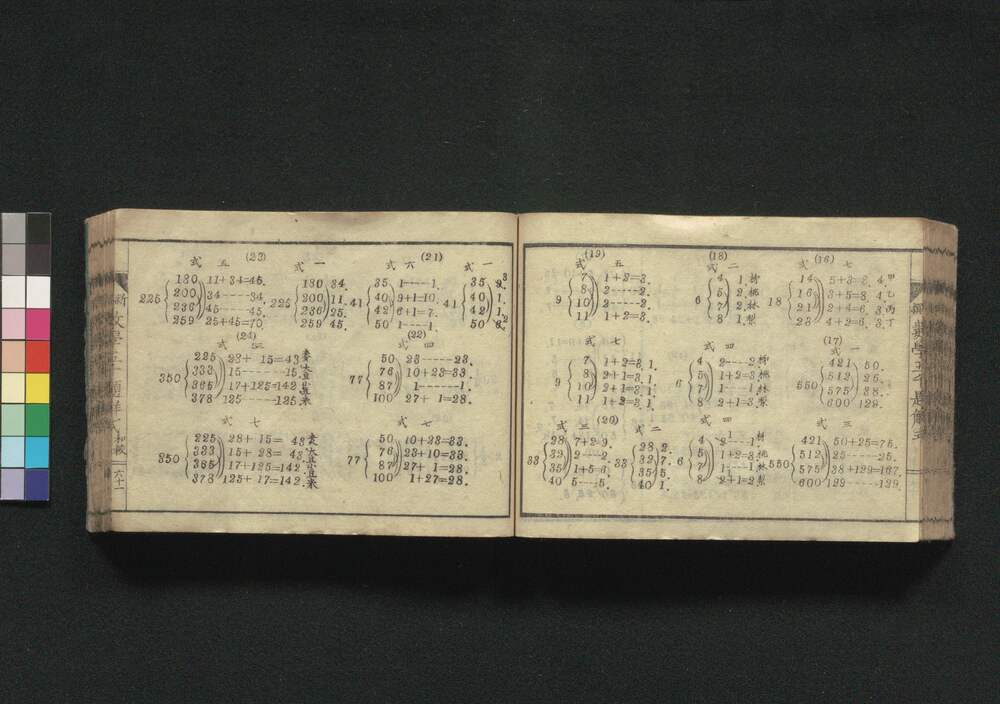 (16)
式 七
18
14 5+3=8. 4. 甲
16 3+5=8. 4. 乙
21 2+4=6. 3. 丙
23 4+2=6. 3. 丁
(17)
式 一
550
421 50.
512 25.
575 38.
600 129.
式 三
550
421 50+25=75.
512 25-----25.
575 38+129=167.
600 129-----129.
(18)
式 二
6
4 1. 柳
5 2. 桃
7 2. 林
8 1. 梨
式 四
6
4 2----2. 柳
5 1+2=3. 桃
7 1----1. 林
8 2+1=3. 梨
式 四
6
4 1----1. 柳
5 1+2=3. 桃
7 1----1. 林
8 2+1=2. 梨
(19)
式 五
9
7 1+2=3.
8 2-----2.
10 2-----2.
11 1+2=3.
式 七
9
7 1+2=3. 1.
8 2+1=3. 1.
10 2+1=3. 1.
11 1+2=3. 1.
(20)
式 二
33
28 2.
32 7.
35 5.
40 1.
式 三
33
28 7+2=9.
32 2----2.
35 1+5=6.
40 5----5.
(21)
式 一
41
35 9.
40 1.
42 1.
50 6.
式 六
41
35 1-----1.
40 9+1=10.
42 6+1=7.
50 1-----1.
(22)
式 四
77
50 23-----23.
76 10+23=33.
87 1------1.
100 27+1=28.
式 七
77
50 10+23=33.
76 23+10=33.
87 27+1=28.
100 1+27=28.
(23)
式 一
225
180 34.
200 11.
236 25.
259 45.
式 五
225
180 11+34=45.
200 34-----34.
236 45-----45.
259 25+45=70.
(24)
式 三
350
225 28+15=43
333 15------15
365 17+125=142
378 125-----125.
式 七
350
225 28+15=43
333 15+28=43
365 17+125=142
378 125+17=142
六十一